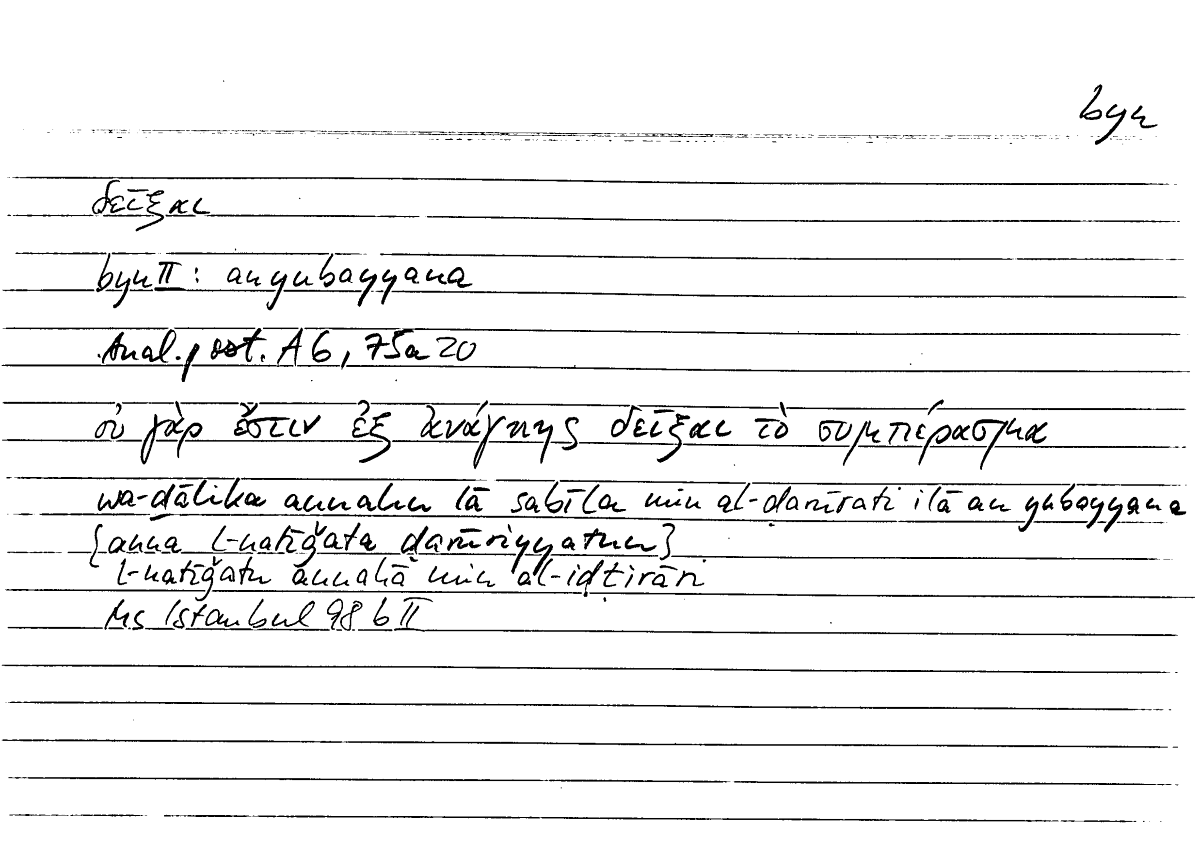 byn
δεῖξαι
byn II: an yubayyana
Anal. post. A 6, 75a 20
οὐ γὰρ ἔστιν ἐξ ἀνάγκης δεῖξαι τὸ συμπέρασμα
wa-ḏālika annahu lā sabīla min al-ḍarūrati ilā an yubayyana
{anna l-natīǧata ḍarūriyyatun}
l-natīǧatu annahā min al-iḍṭirāri
Ms Istanbul 98 b II